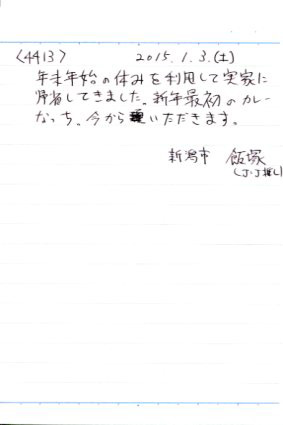 〈4413〉 2015.1.3.(土)
年末年始の休みを利用して実家に
帰省してきました。新年最初のカレー
なっち。今からいただきます。
新潟市 飯塚
(J・J推し)